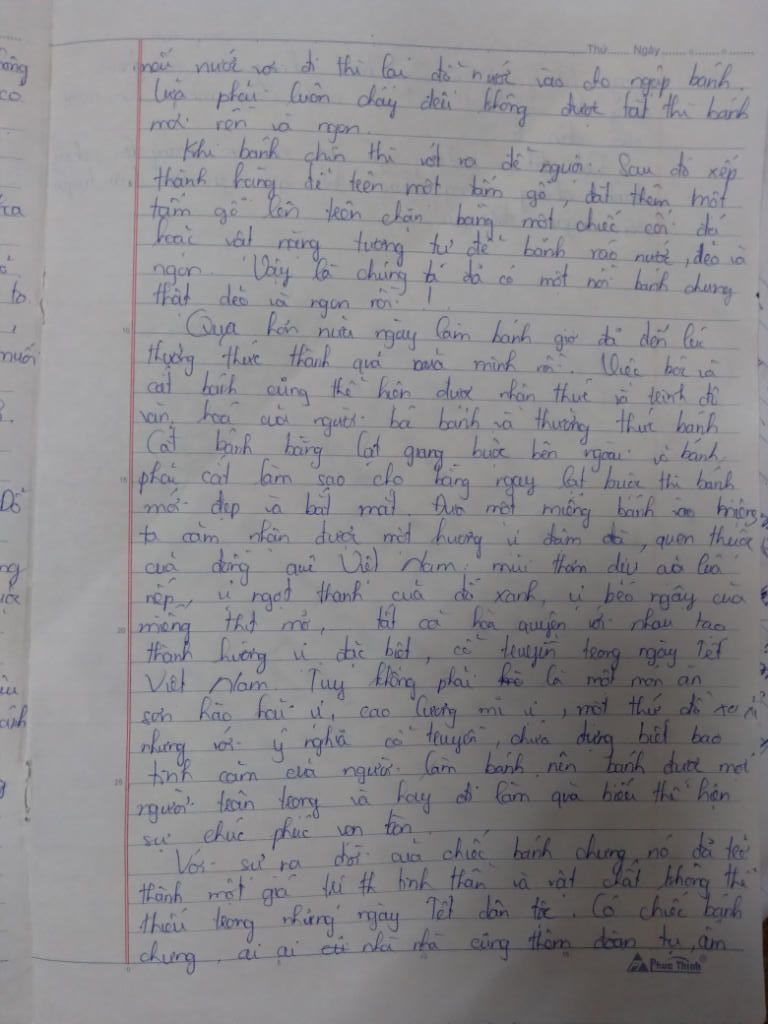 Thứ ...... Ngày ...... . ...... . ......
nấu nước vơi đi thì lại đổ nước vào cho ngập bánh.
Lửa phải luôn cháy đều không được tắt thì bánh
mới rền và ngon.
Khi bánh chín thì vớt ra để nguội. Sau đó xếp
thành hàng để trên một tấm gỗ, đặt thêm một
tấm gỗ lên trên chặn bằng một chiếc cối đá
hoặc vật nặng tương tự để bánh ráo nước, dẻo và
ngon. Vậy là chúng ta đã có một nồi bánh chưng
thật dẻo và ngon rồi !
Qua hơn nửa ngày làm bánh giờ đã đến lúc
thưởng thức thành quả của mình rồi. Việc bóc và
cắt bánh cũng thể hiện được nhận thức và trình độ
văn hoá của người bá bánh và thưởng thức bánh
Cắt bánh bằng lạt giang buộc bên ngoài và bánh
phải cắt làm sao cho bằng ngay lạt buộc thì bánh
mới đẹp và bắt mắt. Đưa một miếng bánh vào miệng
ta cảm nhận được một hương vị đậm đà, quen thuộc
của đồng quê Việt Nam: mùi thơm dịu của lúa
nếp, vị ngọt thanh của đỗ xanh, vị béo ngậy của
miếng thịt mỡ, tất cả hoà quyện với nhau tạo
thành hương vị đặc biệt, cổ truyền trong ngày Tết
Việt Nam. Tuy không phải là một món ăn
sơn hào hải vị, cao lương mĩ vị, một thứ đồ xa xỉ
nhưng với ý nghĩa cổ truyền, chứa đựng biết bao
tình cảm của người làm bánh nên bánh được mọi
người trân trọng và hay đi làm quà biếu thể hiện
sự chúc phúc vẹn toàn.
Với sự ra đời của chiếc bánh chưng, nó đã trở
thành một giá trị tinh thần và vật chất không thể
thiếu trong những ngày Tết dân tộc. Có chiếc bánh
chưng, ai ai nhà nhà cũng thêm đoàn tụ, ấm
Phúc Thịnh